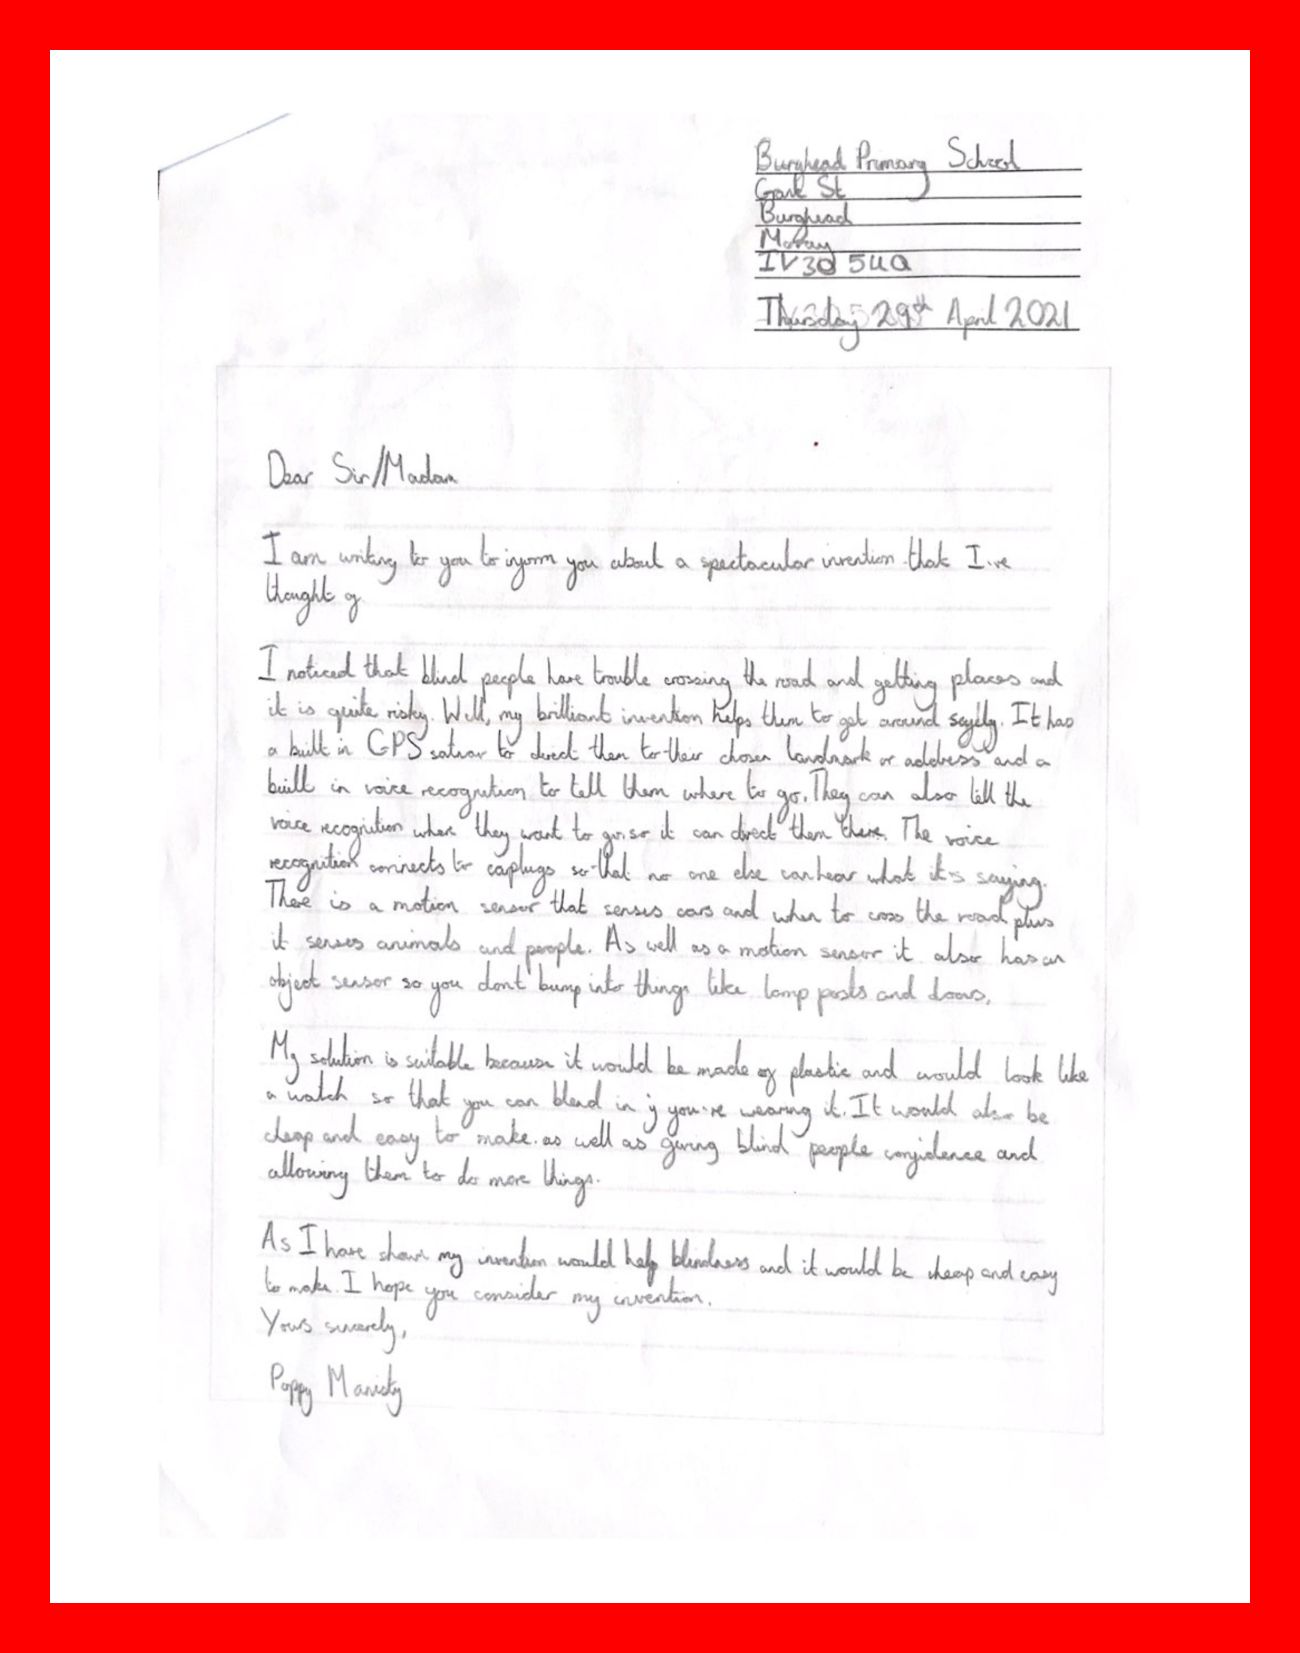 Burghead Primary School
Grant St
Burghead
Moray
IV30 5UA
Thursday 29th April 2021
Dear Sir/Madam
I am writing to you to inform you about a spectacular invention that I've
thought of
I noticed that blind people have trouble crossing the road and getting places and
it is quite risky. Well, my brilliant invention helps them to get around safely. It has
a built in GPS satnav to direct them to their chosen landmark or address and a
built in voice recognition to tell them where to go. They can also tell the
voice recognition where they want to go so it can direct them there. The voice
recognition connects to earplugs so that no one else can hear what it's saying.
There is a motion sensor that senses cars and when to cross the road plus
it senses animals and people. As well as a motion sensor it also has an
object sensor so you dont bump into things like lamp posts and doors.
My solution is suitable because it would be made of plastic and would look like
a watch so that you can blend in if you're wearing it. It would also be
cheap and easy to make. as well as giving blind people confidence and
allowing them to do more things.
As I have shown my invention would help blindness and it would be cheap and easy
to make. I hope you consider my invention.
Yours sincerely,
Poppy Manisty